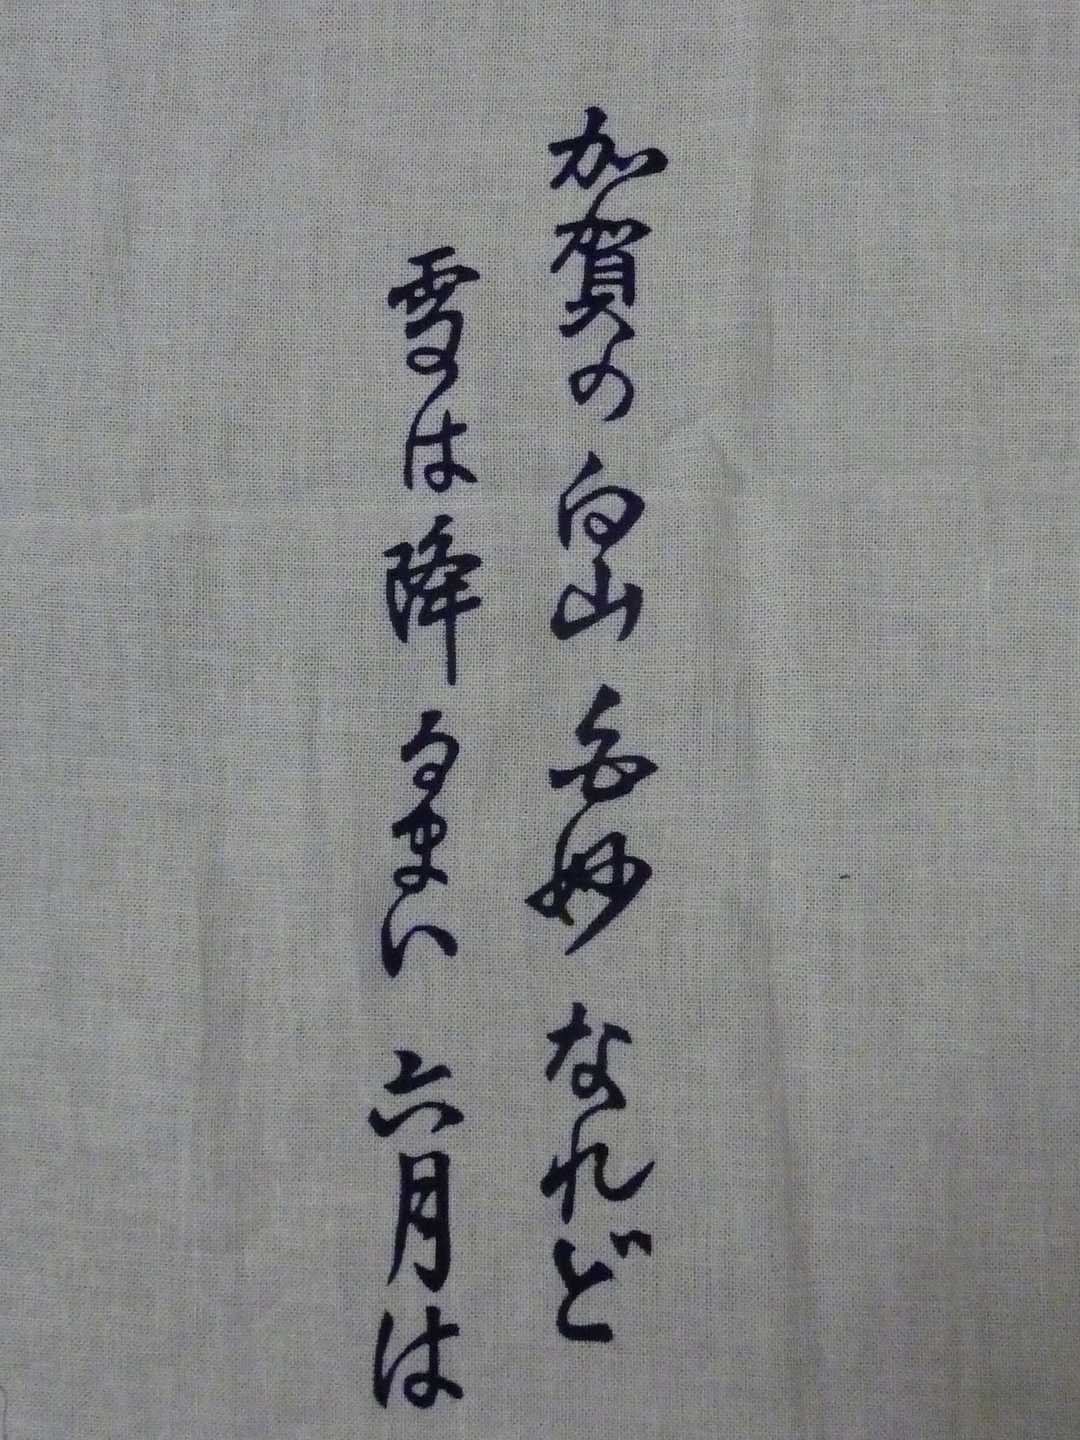 加賀の白山白妙なれど
雪は降るまい六月は